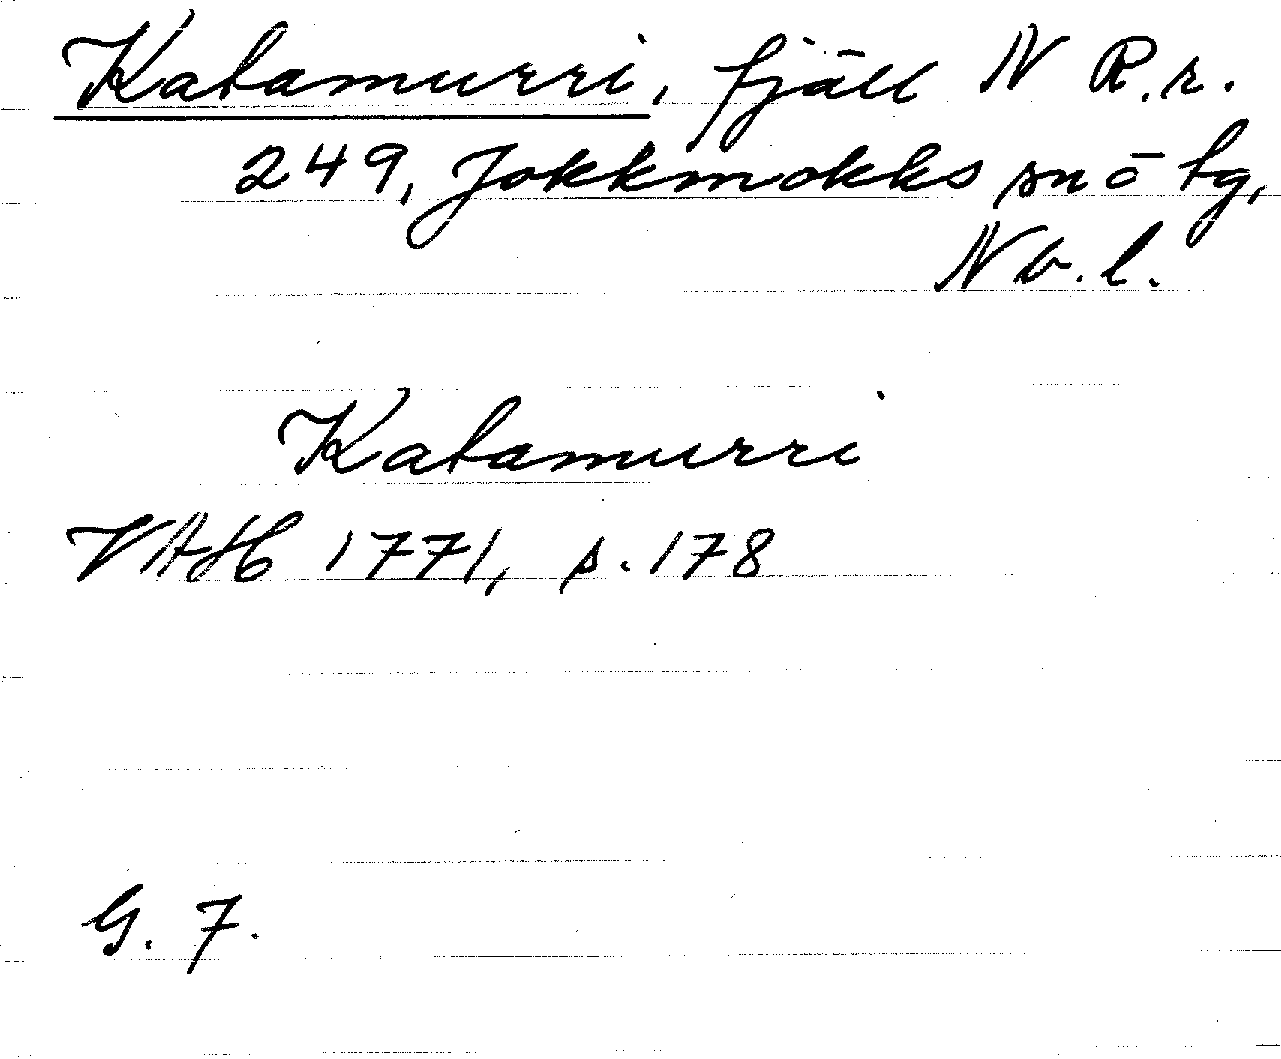 Katamurri, fjäll N R.r.
249, Jokkmokks sn o tg,
Nb.l.
Katamurri
VAH 1771, s. 178
G. F.